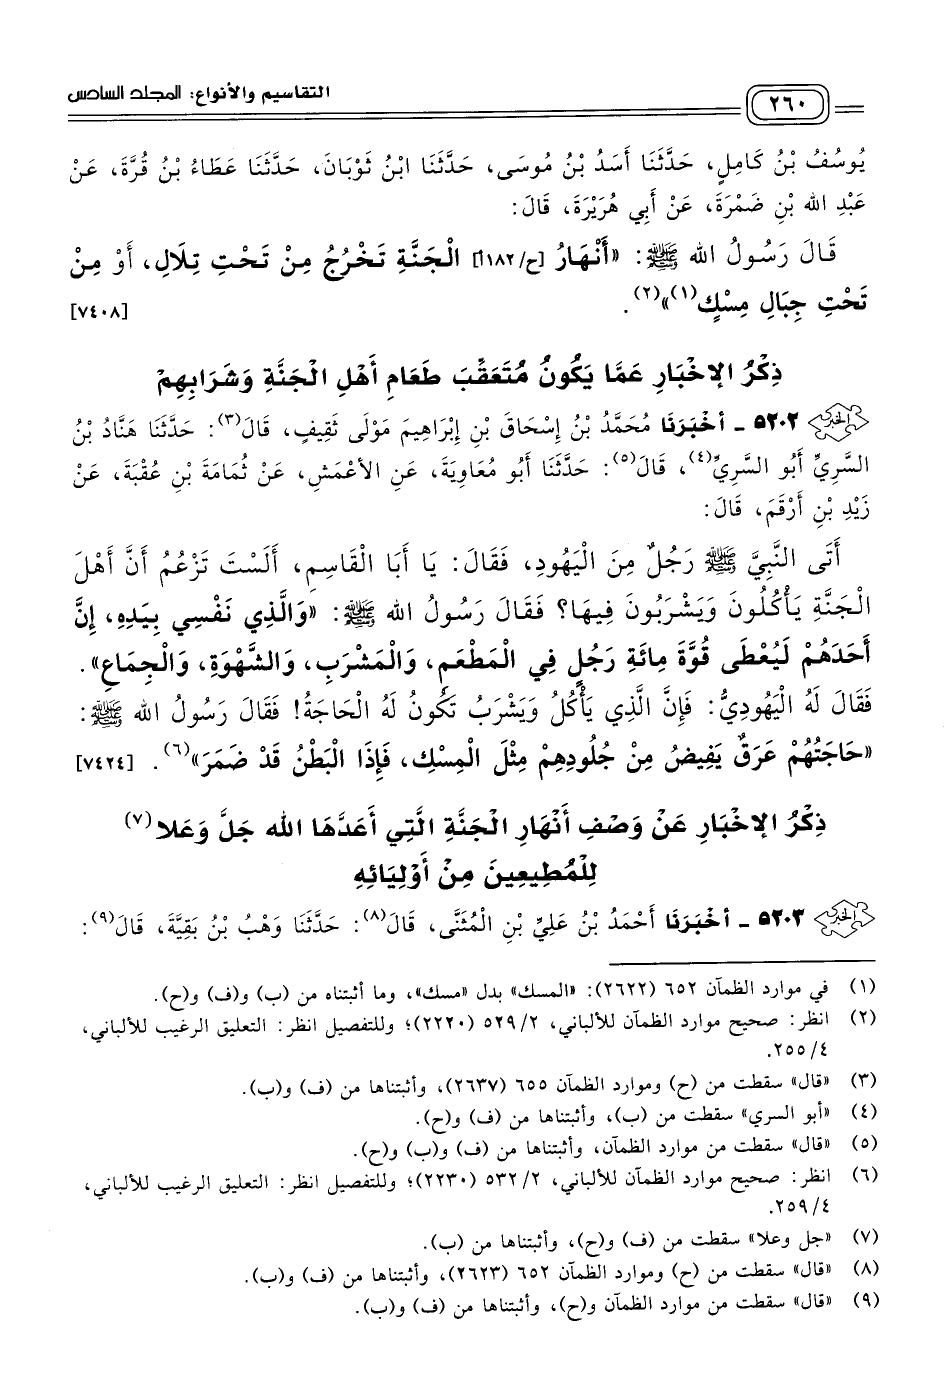 ٢٦٠
التقاسيم والأنواع: المجلد السادس
يُوسُفُ بْنُ كَامِلٍ، حَدَّثَنَا أَسَدُ بْنُ مُوسَى، حَدَّثَنَا ابْنُ ثَوْبَانَ، حَدَّثَنَا عَطَاءُ بْنُ قُرَّةَ، عَنْ
عَبْدِ الله بْنِ ضَمْرَةَ، عَنْ أَبِي هُرَيْرَةَ، قَالَ:
قَالَ رَسُولُ الله ﷺ: «أَنْهَارُ [ح/١٨٢أ] الْجَنَّةِ تَخْرُجُ مِنْ تَحْتِ تِلَالِ، أَوْ مِنْ
تَحْتِ جِبَالِ مِسْكٍ(١)»(٢). [٧٤٠٨]
ذِكْرُ الإخْبَارِ عَمَّا يَكُونُ مُتَعَقَّبَ طَعَامِ أَهْلِ الْجَنَّةِ وَشَرَابِهِمْ
٥٢٠٢ - أخْبَرَنَا مُحَمَّدُ بْنُ إِسْحَاقَ بْنِ إِبْرَاهِيمَ مَوْلَى ثَقِيفٍ، قَالَ(٣): حَدَّثَنَا هَنَّادُ بْنُ
السَّرِيِّ أَبُو السَّرِيِّ(٤)، قَالَ(٥): حَدَّثَنَا أَبُو مُعَاوِيَةَ، عَنِ الأَعْمَشِ، عَنْ ثُمَامَةَ بْنِ عُقْبَةَ، عَنْ
زَيْدِ بْنِ أَرْقَمَ، قَالَ:
أَتَى النَّبِيَّ ﷺ رَجُلٌ مِنَ الْيَهُودِ، فَقَالَ: يَا أَبَا الْقَاسِمِ، أَلَسْتَ تَزْعُمُ أَنَّ أَهْلَ
الْجَنَّةِ يَأْكُلُونَ وَيَشْرَبُونَ فِيهَا؟ فَقَالَ رَسُولُ الله ﷺ: «وَالَّذِي نَفْسِي بِيَدِهِ، إِنَّ
أَحَدَهُمْ لَيُعْطَى قُوَّةَ مِائَةِ رَجُلٍ فِي الْمَطْعَمِ، وَالْمَشْرَبِ، وَالشَّهْوَةِ، وَالْجِمَاعِ».
فَقَالَ لَهُ الْيَهُودِيُّ: فَإِنَّ الَّذِي يَأْكُلُ وَيَشْرَبُ تَكُونُ لَهُ الْحَاجَةُ! فَقَالَ رَسُولُ الله ﷺ:
«حَاجَتُهُمْ عَرَقٌ يَفِيضُ مِنْ جُلُودِهِمْ مِثْلَ الْمِسْكِ، فَإِذَا الْبَطْنُ قَدْ ضَمَرَ»(٦). [٧٤٢٤]
ذِكْرُ الإخْبَارِ عَنْ وَصْفِ أَنْهَارِ الْجَنَّةِ الَّتِي أَعَدَّهَا الله جَلَّ وَعَلا(٧)
لِلْمُطِيعِينَ مِنْ أَوْلِيَائِهِ
٥٢٠٣ - أخْبَرَنَا أَحْمَدُ بْنُ عَلِيِّ بْنِ الْمُثَنَّى، قَالَ(٨): حَدَّثَنَا وَهْبُ بْنُ بَقِيَّةَ، قَالَ(٩):
(١) في موارد الظمآن ٦٥٢ (٢٦٢٢): «المسك» بدل «مسك»، وما أثبتناه من (ب) و(ف) و(ح).
(٢) انظر: صحيح موارد الظمآن للألباني، ٥٢٩/٢ (٢٢٢٠)؛ وللتفصيل انظر: التعليق الرغيب للألباني،
٢٥٥/٤.
(٣) «قال» سقطت من (ح) وموارد الظمآن ٦٥٥ (٢٦٣٧)، وأثبتناها من (ف) و(ب).
(٤) «أبو السري» سقطت من (ب)، وأثبتناها من (ف) و(ح).
(٥) «قال» سقطت من موارد الظمآن، وأثبتناها من (ف) و(ب) و(ح).
(٦) انظر: صحيح موارد الظمآن للألباني، ٥٣٢/٢ (٢٢٣٠)؛ وللتفصيل انظر: التعليق الرغيب للألباني،
٢٥٩/٤.
(٧) «جل وعلا» سقطت من (ف) و(ح)، وأثبتناها من (ب).
(٨) «قال» سقطت من (ح) وموارد الظمآن ٦٥٢ (٢٦٢٣)، وأثبتناها من (ف) و(ب).
(٩) «قال» سقطت من موارد الظمآن و(ح)، وأثبتناها من (ف) و(ب).